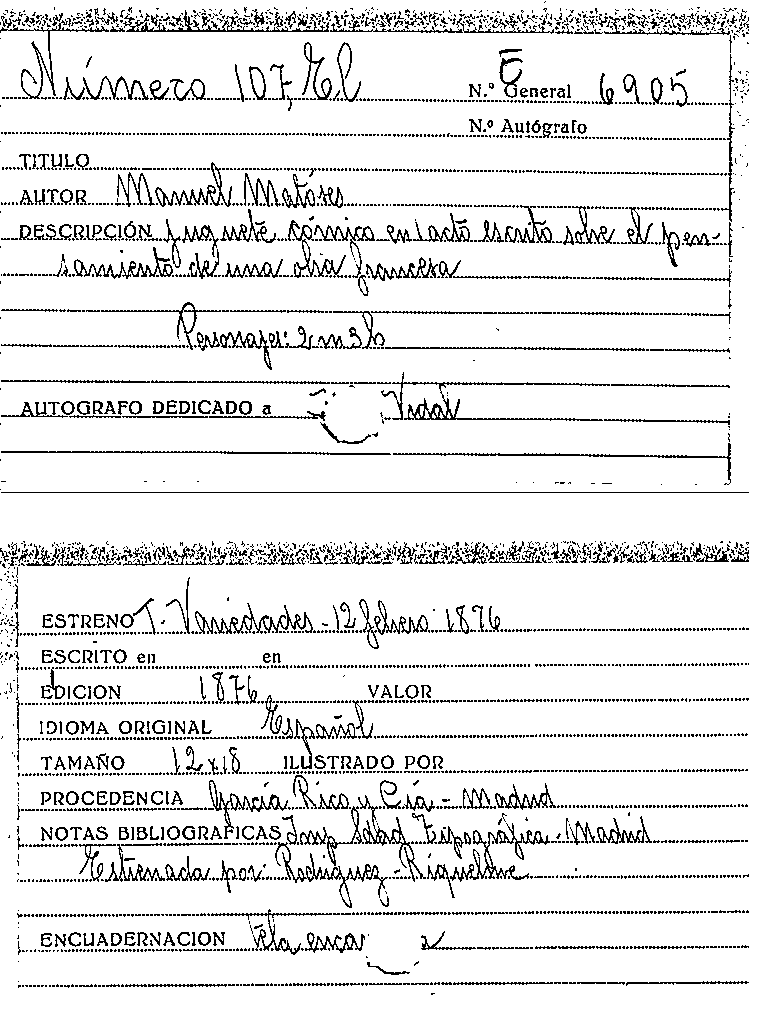 Número 107, El
E
N.º General 6905
N.º Autógrafo
TITULO
AUTOR Manuel Matóses
DESCRIPCIÓN Juguete cómico en 1 acto escrito sobre el pen-
samiento de una obra francesa
Personajes: 2 m 3 h
AUTOGRAFO DEDICADO a Vidal
ESTRENO T. Variedades - 12 febrero 1876
ESCRITO en en
EDICION 1876 VALOR
IDIOMA ORIGINAL Español
TAMAÑO 12 x 18 ILUSTRADO POR
PROCEDENCIA García Rico y Cía - Madrid
NOTAS BIBLIOGRAFICAS Imp Sdad Tipográfica - Madrid
Estrenada por: Rodríguez - Riquelme
ENCUADERNACION Tela